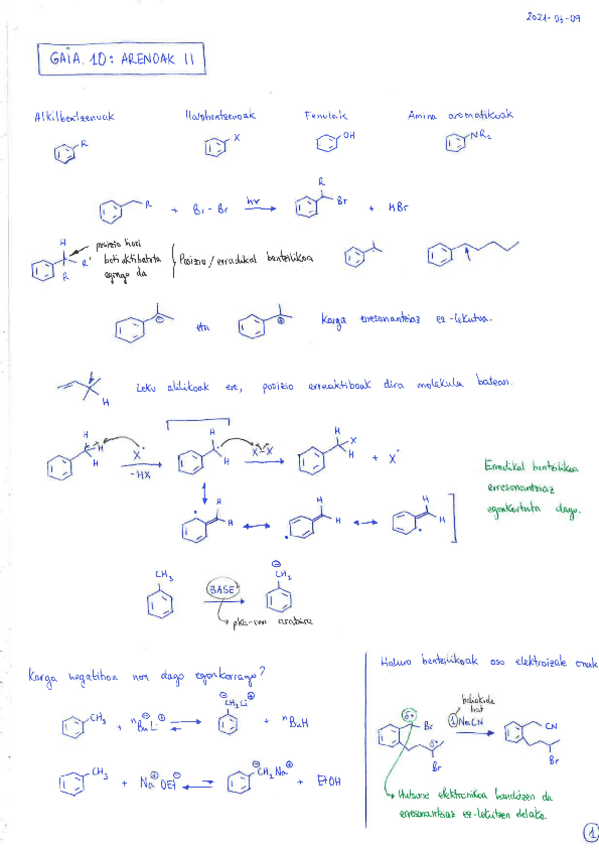 2021-03-09
GAIA. 10: ARENOAK II
Alkilbentzenoak Halobentzenoak Fenolak Amina aromatikoak
R X OH NR₂
R + Br-Br hν R Br + HBr
H R R' posizio hori
egongo da
Posizio/erradikal bentzilikoa
eta karga erresonantziaz ez-lekutua.
H Leku alilikoak ere, posizio erreaktiboak dira molekula batean.
H H H X• -HX H H X-X H X H + X•
H H H H H H
Erradikal bentzilikoa
erresonantziaz
egonkortuta dago.
CH₃ BASE CH₂
pKa-ren arabera
Karga negatiboa non dago egonkorrago?
CH₃ + ⁿBuLi CH₂Li + ⁿBuH
CH₃ + NaOEt CH₂Na + EtOH
Haluro bentzilikoak oso elektroizale onak
baliokide
bat
δ+ Br δ+ Br 1 NaCN CN Br
Hutsune elektronikoa handitzen da
erresonantziaz ez-lekutzen delako.
1